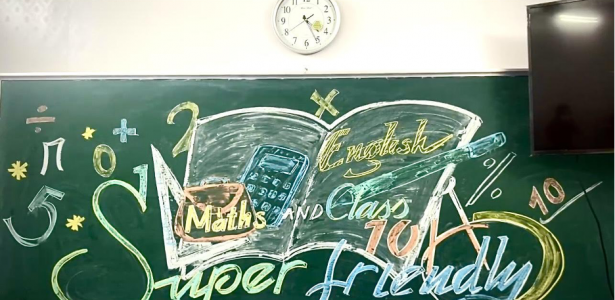 ÷ π + 2 ×
* 0 1
5 *
English
Maths AND Class
% 10
10A5
Super friendly